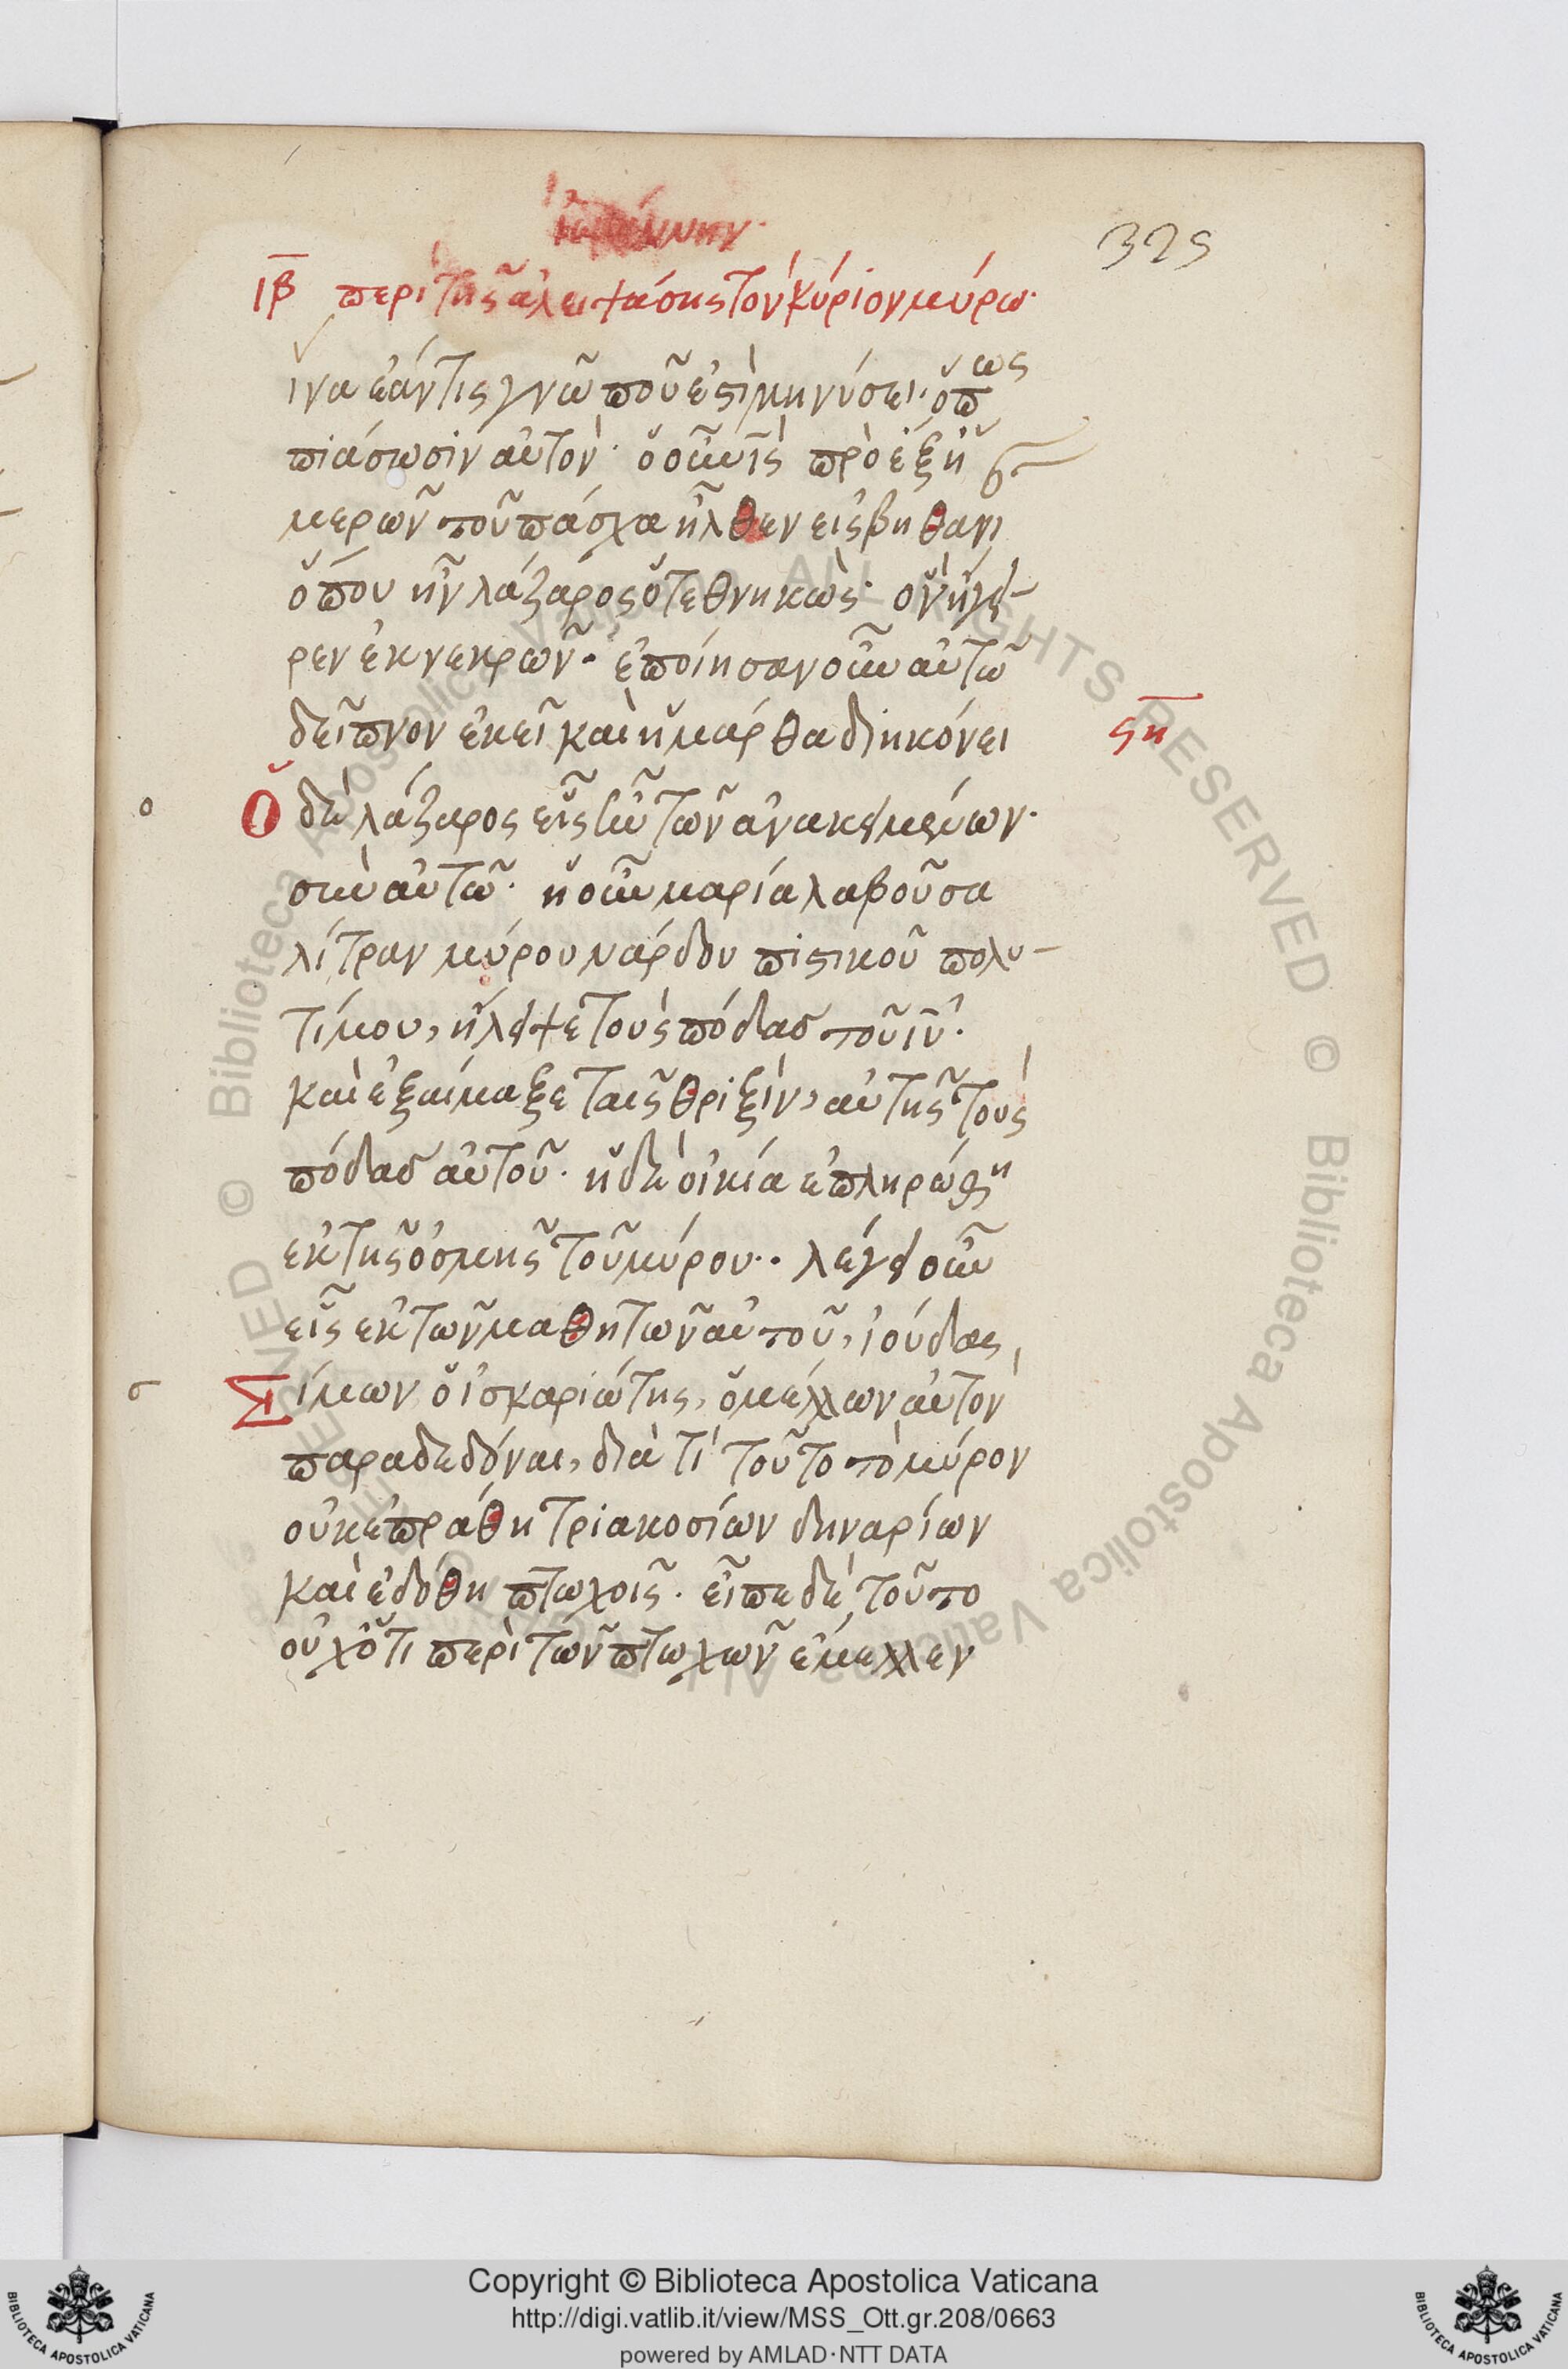 ἰωάννην·
325
ιβ περὶ τῆς ἀλειψάσης τὸν κύριον μύρω·
ἵνα ἐάν τις γνῶ ποῦ ἐστὶ μηνύσει· ὅπως
πιάσωσιν αὐτόν· ὁ οὖν ις πρὸ ἐξ ἡ
μερῶν τοῦ πάσχα ἦλθεν εἰς βηθανι
ὅπου ἦν λάζαρος ὁ τεθνηκὼς· ὃν ἤγει-
ρεν ἐκ νεκρῶν· ἐποίησαν οὖν αὐτῶ
δεῖπνον ἐκεῖ καὶ ἡ μάρθα διηκόνει
ϟη
ο
Ὁ δὲ λάζαρος εἷς ἦν τῶν ἀνακειμένων·
σὺν αὐτῶ· ἡ οὖν μαρία λαβοῦσα
λίτραν μύρου νάρδου πιστικοῦ πολυ-
τίμου, ἤλειψε τοὺς πόδας τοῦ ιυ·
καὶ ἐξαίμαξε ταῖς θριξὶν, αὐτῆς τοὺς
πόδας αὐτοῦ· ἡ δὲ οἰκία ἐπληρώθη
ἐκ τῆς ὀσμῆς τοῦ μύρου·· λέγει οὖν
εἷς ἐκ τῶν μαθητῶν αὐτοῦ, ἰούδας,
σ
Σίμων ὁ ἰσκαριώτης, ὁ μέλλων αὐτὸν
παραδεδόναι, διὰ τί τοῦτο τὸ μύρον
οὐκ ἐπράθη τριακοσίων δηναρίων
καὶ ἐδόθη πτωχοῖς· εἶπε δὲ τοῦτο
οὐχ ὅτι περὶ τῶν πτωχῶν ἔμελλεν
Copyright © Biblioteca Apostolica Vaticana
http://digi.vatlib.it/view/MSS_Ott.gr.208/0663
powered by AMLAD·NTT DATA